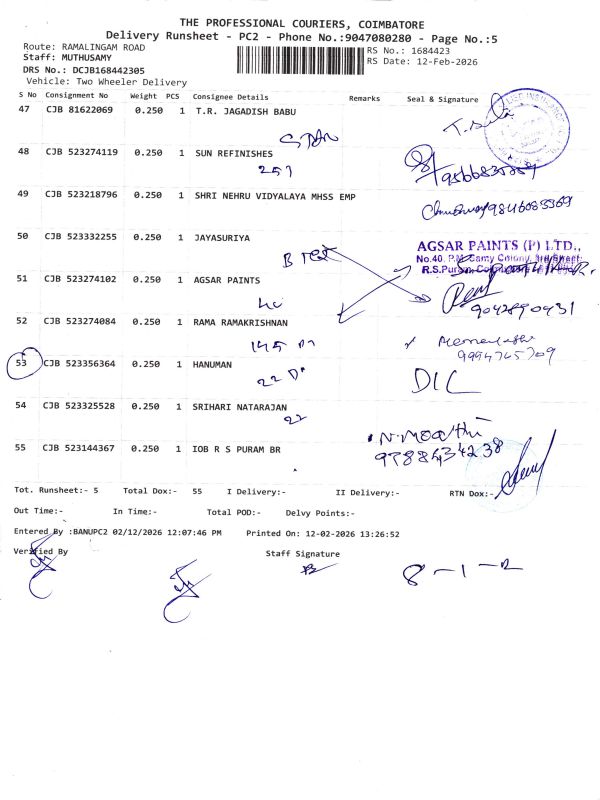 THE PROFESSIONAL COURIERS, COIMBATORE
Delivery Runsheet - PC2 - Phone No.:9047080280 - Page No.:5
Route: RAMALINGAM ROAD RS No.: 1684423
Staff: MUTHUSAMY RS Date: 12-Feb-2026
DRS No.: DCJB168442305
Vehicle: Two Wheeler Delivery
S No Consignment No Weight PCS Consignee Details Remarks Seal & Signature
47 CJB 81622069 0.250 1 T.R. JAGADISH BABU
48 CJB 523274119 0.250 1 SUN REFINISHES
257
49 CJB 523218796 0.250 1 SHRI NEHRU VIDYALAYA MHSS EMP
50 CJB 523332255 0.250 1 JAYASURIYA
AGSAR PAINTS (P) LTD.,
No.40, P.M. Samy Colony, 3rd Street,
R.S.Puram, Coimbatore
51 CJB 523274102 0.250 1 AGSAR PAINTS
9042890431
52 CJB 523274084 0.250 1 RAMA RAMAKRISHNAN
9994765709
53 CJB 523356364 0.250 1 HANUMAN
DIL
54 CJB 523325528 0.250 1 SRIHARI NATARAJAN
22
N. Moorthi
9788434238
55 CJB 523144367 0.250 1 IOB R S PURAM BR
Tot. Runsheet:- 5 Total Dox:- 55 I Delivery:- II Delivery:- RTN Dox:-
Out Time:- In Time:- Total POD:- Delvy Points:-
Entered By :BANUPC2 02/12/2026 12:07:46 PM Printed On: 12-02-2026 13:26:52
Verified By Staff Signature
8-1-2